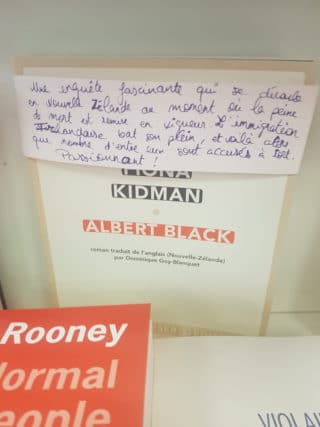 Une enquête fascinante qui se déroule
en Nouvelle Zélande au moment où la peine
de mort est remise en vigueur. L'immigration
Irlandaise bat son plein, et voilà alors
que nombre d'entre eux sont accusés à tort.
Passionnant !
FIONA
KIDMAN
ALBERT BLACK
roman traduit de l'anglais (Nouvelle-Zélande)
par Dominique Goy-Blanquet
Rooney
Normal
People
VIOLAI